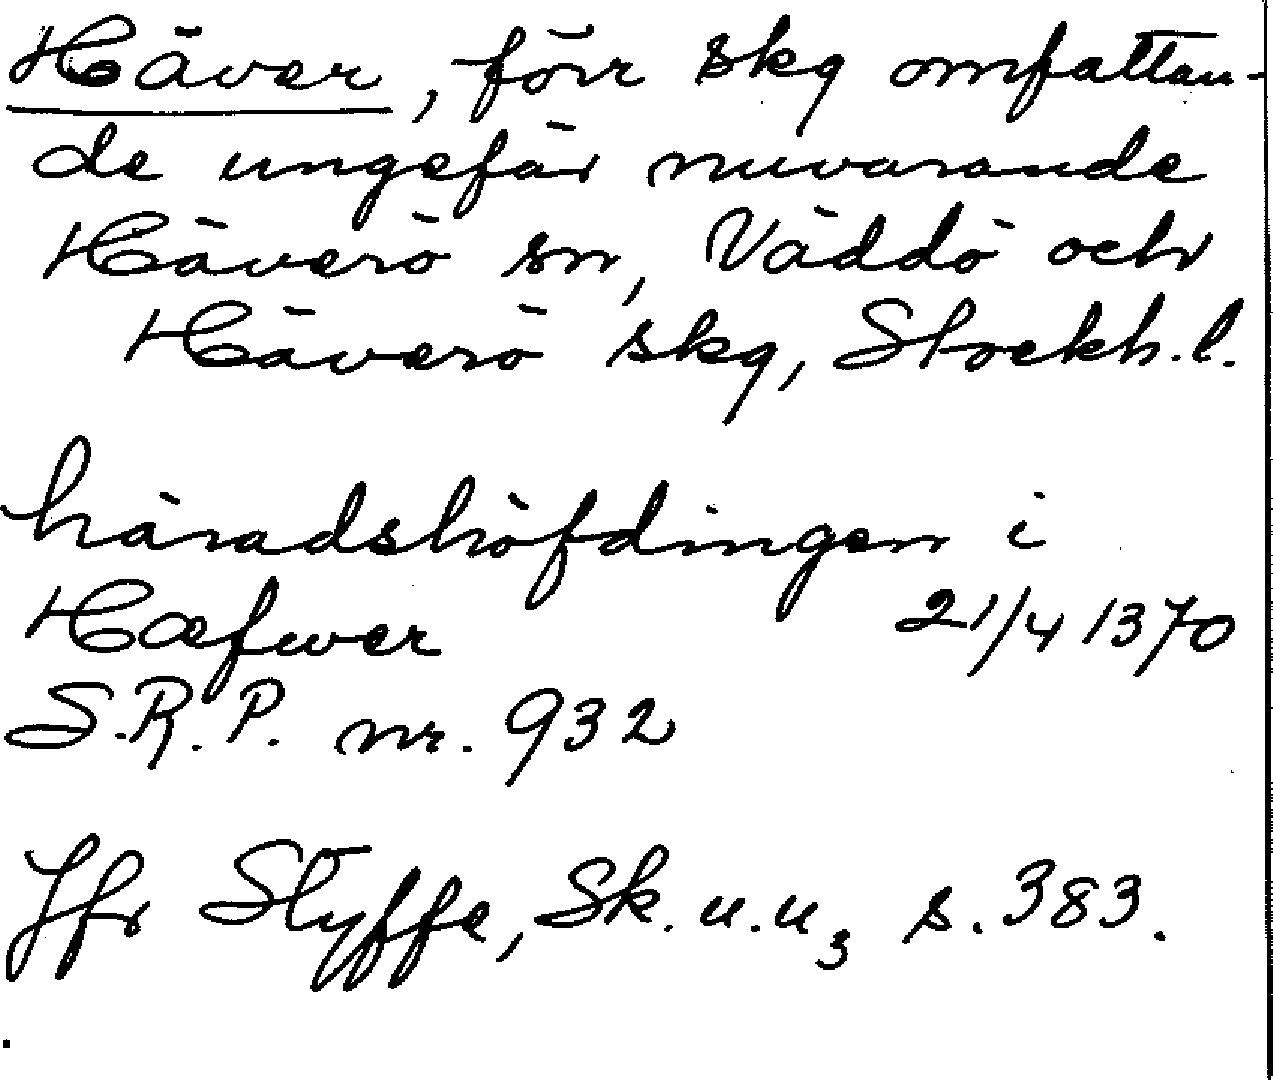 Häver, förr skg omfattan-
de ungefär nuvarande
Häverö sn, Väddö och
Häverö skg, Stockh. l.
häradshöfdingen i
Hæfwer 21/4 1370
S.R.P. nr. 932
Jfr Styffe, Sk. u.u3 s. 383.